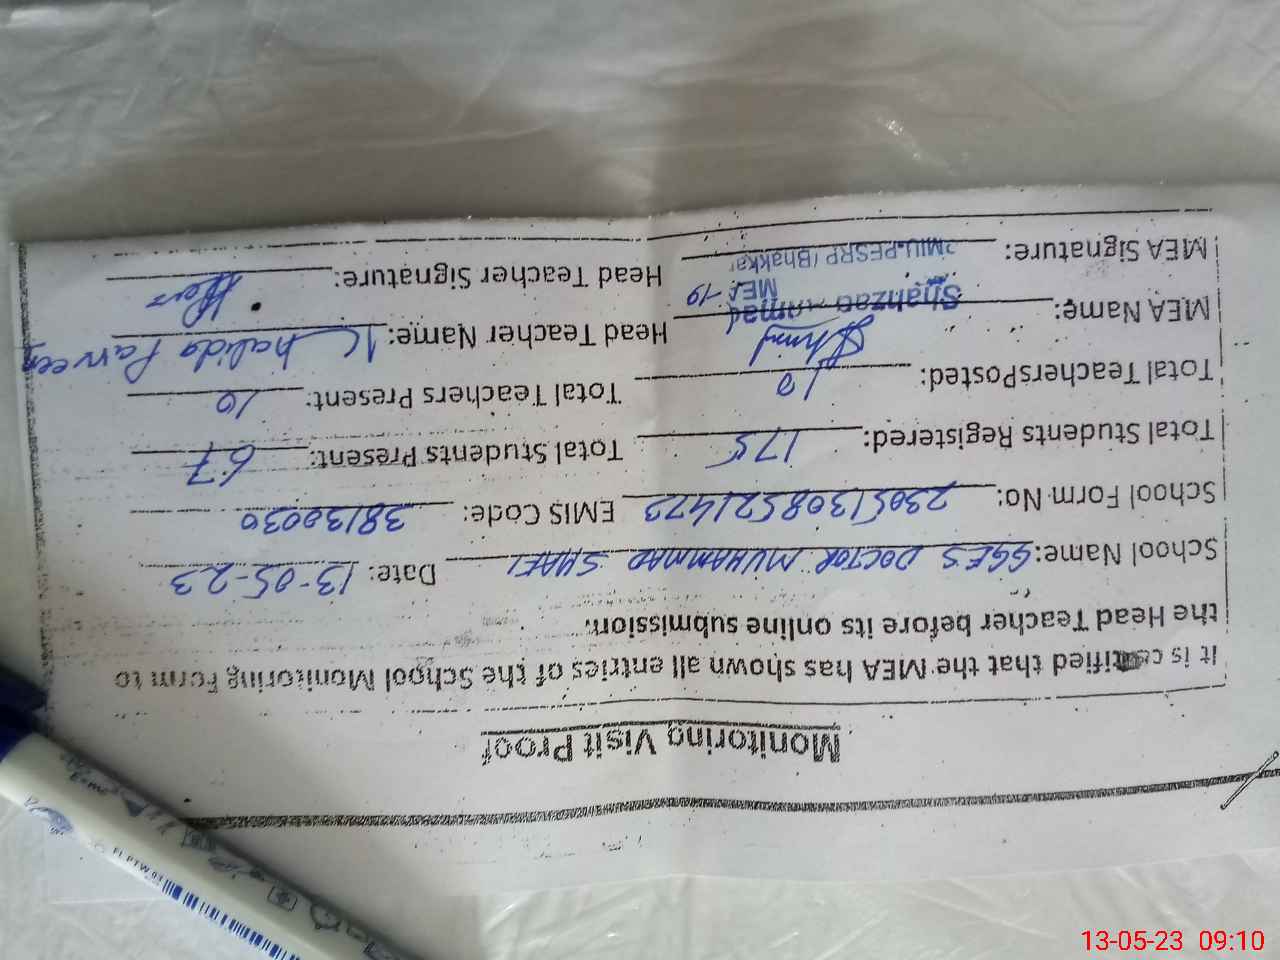 Monitoring Visit Proof
It is certified that the MEA has shown all entries of the School Monitoring Form to
the Head Teacher before its online submission.
School Name: GGES DOCTOR MUHAMMAD SHAFI Date: 13-05-23
School Form No: 23051308521472 EMIS Code: 38130030
Total Students Registered: 175 Total Students Present: 67
Total Teachers Posted: 10 Total Teachers Present: 10
MEA Name: Shahzad Ahmad Head Teacher Name: Khalida Parveen
MEA -19
MEA Signature: PMIU-PESRP (Bhakkar Head Teacher Signature:
FLPTW 03
13-05-23 09:10